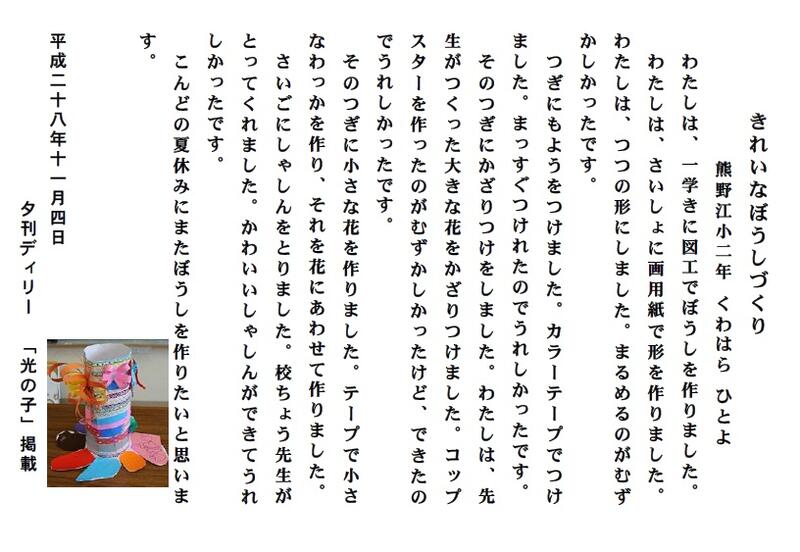 きれいなぼうしづくり
熊野江小二年　くわはら　ひとよ
わたしは、一学きに図工でぼうしを作りました。
わたしは、さいしょに画用紙で形を作りました。
わたしは、つつの形にしました。まるめるのがむず
かしかったです。
つぎにもようをつけました。カラーテープでつけ
ました。まっすぐつけれたのでうれしかったです。
そのつぎにかざりつけをしました。わたしは、先
生がつくった大きな花をかざりつけました。コップ
スターを作ったのがむずかしかったけど、できたの
でうれしかったです。
そのつぎに小さな花を作りました。テープで小さ
なわっかを作り、それを花にあわせて作りました。
さいごにしゃしんをとりました。校ちょう先生が
とってくれました。かわいいしゃしんができてうれ
しかったです。
こんどの夏休みにまたぼうしを作りたいと思いま
す。
平成二十八年十一月四日
夕刊ディリー　「光の子」掲載